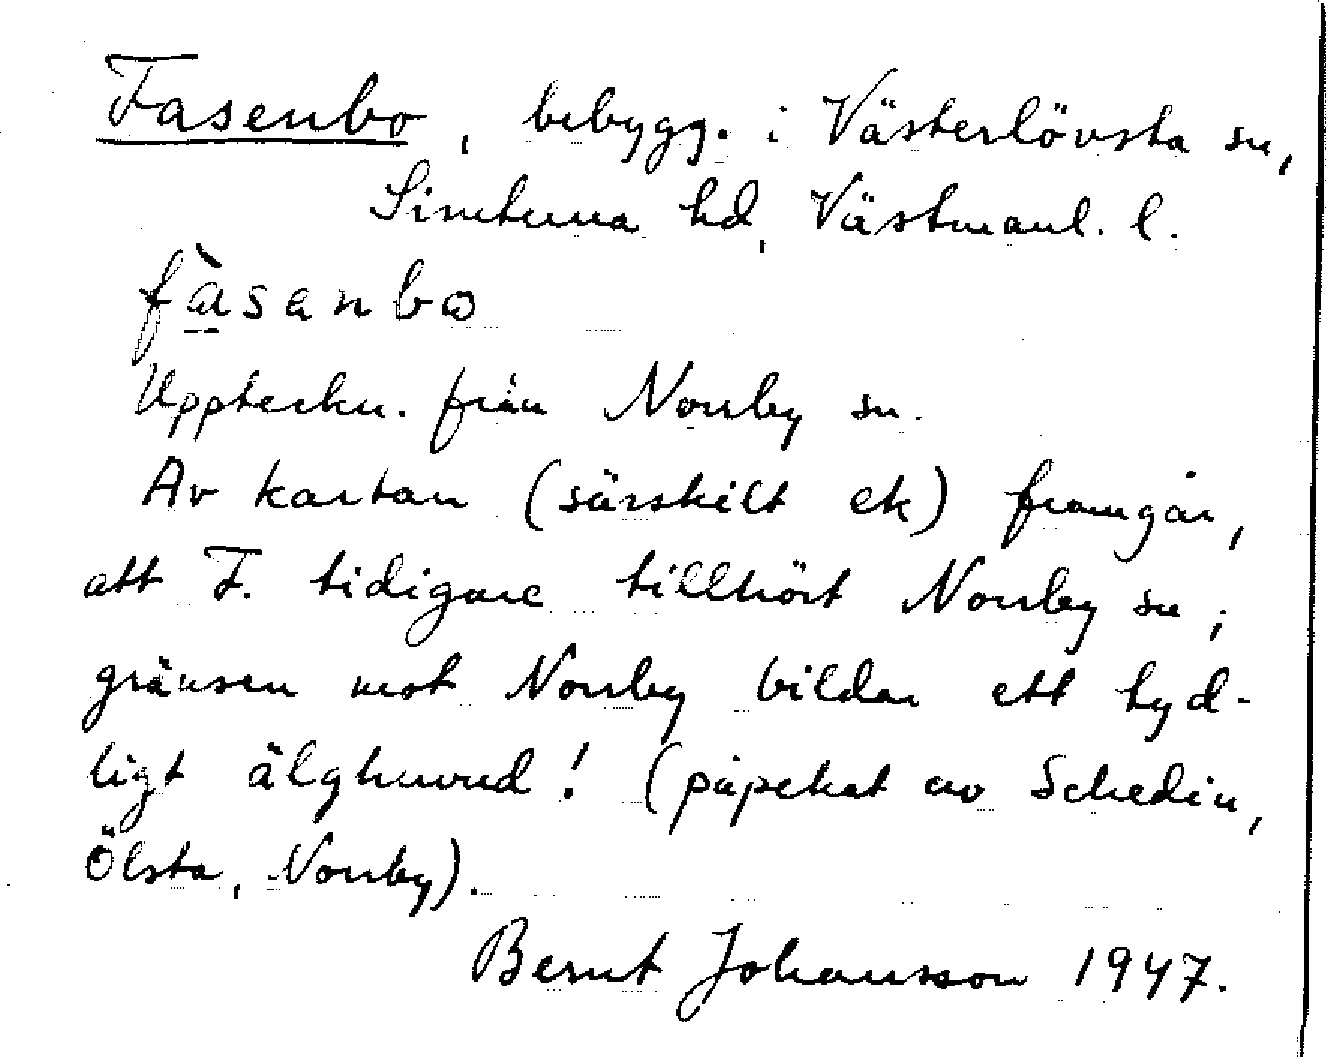 Fasenbo, bebygg. i Västerlövsta sn,
Simtuna hd, Västmanl. l.
fàsanbo
Uppteckn. från Norrby sn.
Av kartan (särskilt ek) framgår,
att F. tidigare tillhört Norrby sn;
gränsen mot Norrby bildar ett tyd-
ligt älghuvud! (påpekat av Schedin,
Ölsta, Norrby).
Bernt Johansson 1947.